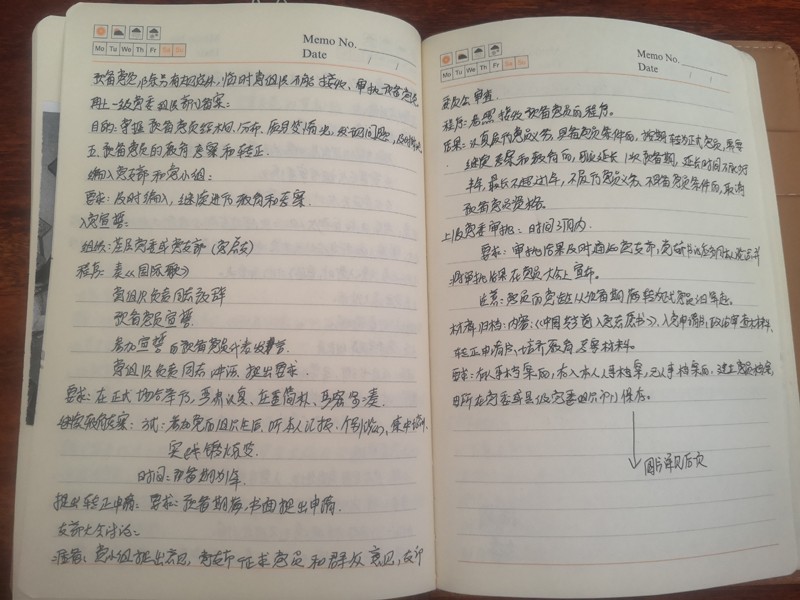 Memo No.
Date / /
Mo Tu We Th Fr Sa Su
预备党员,除另有规定外,临时党组织不能接收、审批预备党员
再上一级党委组织部门备案:
目的:掌握预备党员结构、分布、质量等情况,发现问题,及时
五、预备党员的教育考察和转正。
编入党支部和党小组:
要求:及时编入,继续进行教育和考察.
入党宣誓:
组织:基层党委或党支部(党总支)
程序:奏《国际歌》
党组织负责同志致辞
预备党员宣誓.
参加宣誓的预备党员代表发言.
党组织负责同志讲话,提出要求.
要求:在正式场合举行,严肃认真、庄重简朴、
继续教育考察:方式:参加党的组织生活、听本人汇报、个别谈心、集中培训、
实践锻炼等.
时间:预备期为1年.
提出转正申请:要求:预备期满,书面提出申请.
支部大会讨论:
准备:党小组提出意见,党支部征求党员和群众意见,支部
Memo No.
Date / /
Mo Tu We Th Fr Sa Su
委员会审查.
程序:参照接收预备党员的程序.
结果:认真履行党员义务、具备党员条件的,按期转为正式党员,需要
继续考察和教育的,可以延长1次预备期,延长时间不少于
半年,最长不超过1年,不履行党员义务、不具备党员条件的,取消
预备党员资格.
上级党委审批:时间3个月内.
要求:审批结果及时通知党支部,党支部书记应同本人谈话并
将审批结果在党员大会上宣布.
注意:党员的党龄从预备期满转为正式党员之日算起.
材料归档:内容:《中国共产党入党志愿书》、入党申请书、政治审查材料、
转正申请书、培养教育考察材料.
要求:有人事档案的,存入本人人事档案,无人事档案的,建立党员档案,
由所在党委或县级党委组织部门保存.
图详见后页